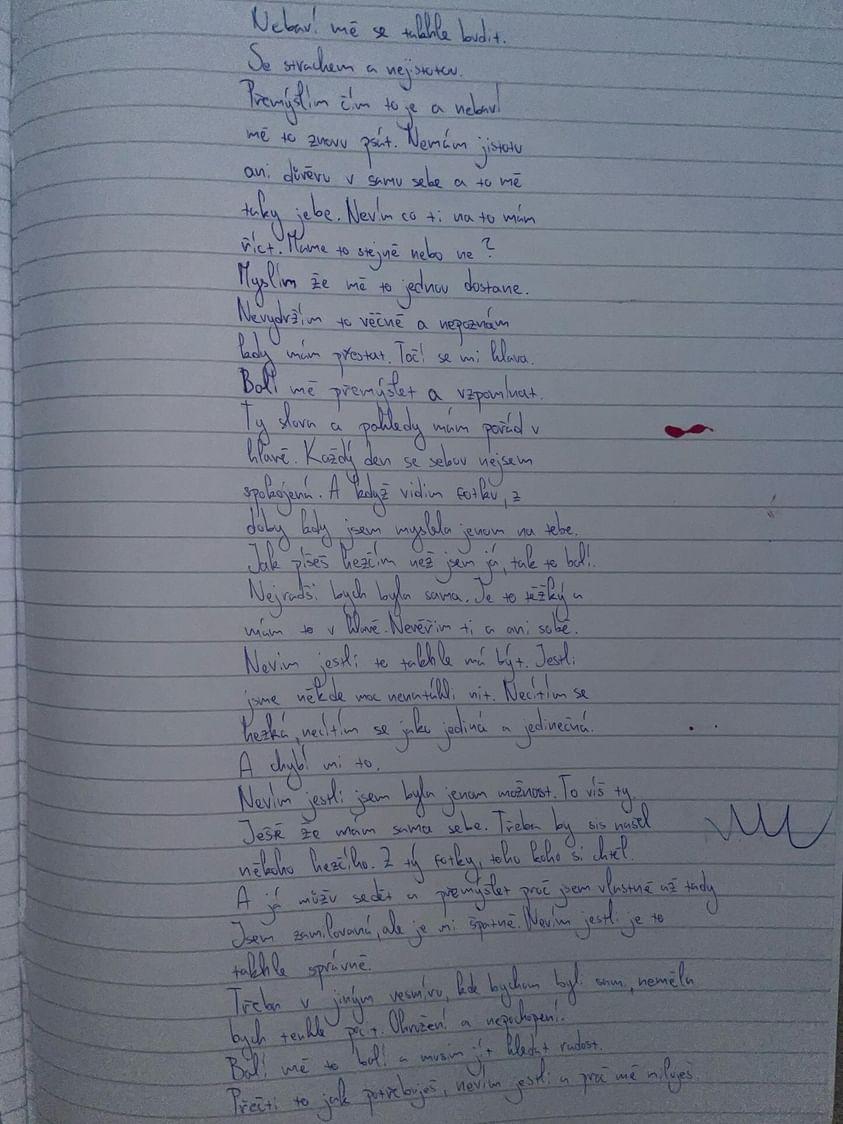 Nebaví mě se takhle budit.
Se strachem a nejistotou.
Přemýšlím čím to je a nebaví
mě to znovu psát. Nemám jistotu
ani důvěru v samu sebe a to mě
taky jebe. Nevím co ti na to mám
říct. Máme to stejně nebo ne?
Myslím že mě to jednou dostane.
Nevydržím to věčně a nepoznám
kdy mám přestat. Točí se mi hlava.
Bolí mě přemýšlet a vzpomínat.
Ty slova a pohledy mám pořád v
hlavě. Každý den se sebou nejsem
spokojená. A když vidim fotku, z
doby kdy jsem myslela jenom na tebe.
Jak píšeš hezčím než jsem já, tak to bolí.
Nejradši bych byla sama. Je to těžký a
mám to v hlavě. Nevěřim ti a ani sobě.
Nevim jestli to takhle má být. Jestli
jsme někde moc nenatáhli nit. Necítím se
hezká, necítím se jako jediná a jedinečná.
A chybí mi to.
Nevím jestli jsem byla jenom možnost. To víš ty.
Ještě že mám sama sebe. Třeba by sis našel
někoho hezčího. Z tý fotky, toho koho si chtěl.
A já můžu sedět a přemýšlet proč jsem vlastně až tady
Jsem zamilovaná, ale je mi špatně. Nevím jestli je to
takhle správně.
Třeba v jiným vesmíru, kde bychom byli sami, neměla
bych tenhle pocit. Ohrožení a nepochopení.
Bolí mě to bolí a musim jít hledat radost.
Přečti to jak potřebuješ, nevím jestli a proč mě miluješ.